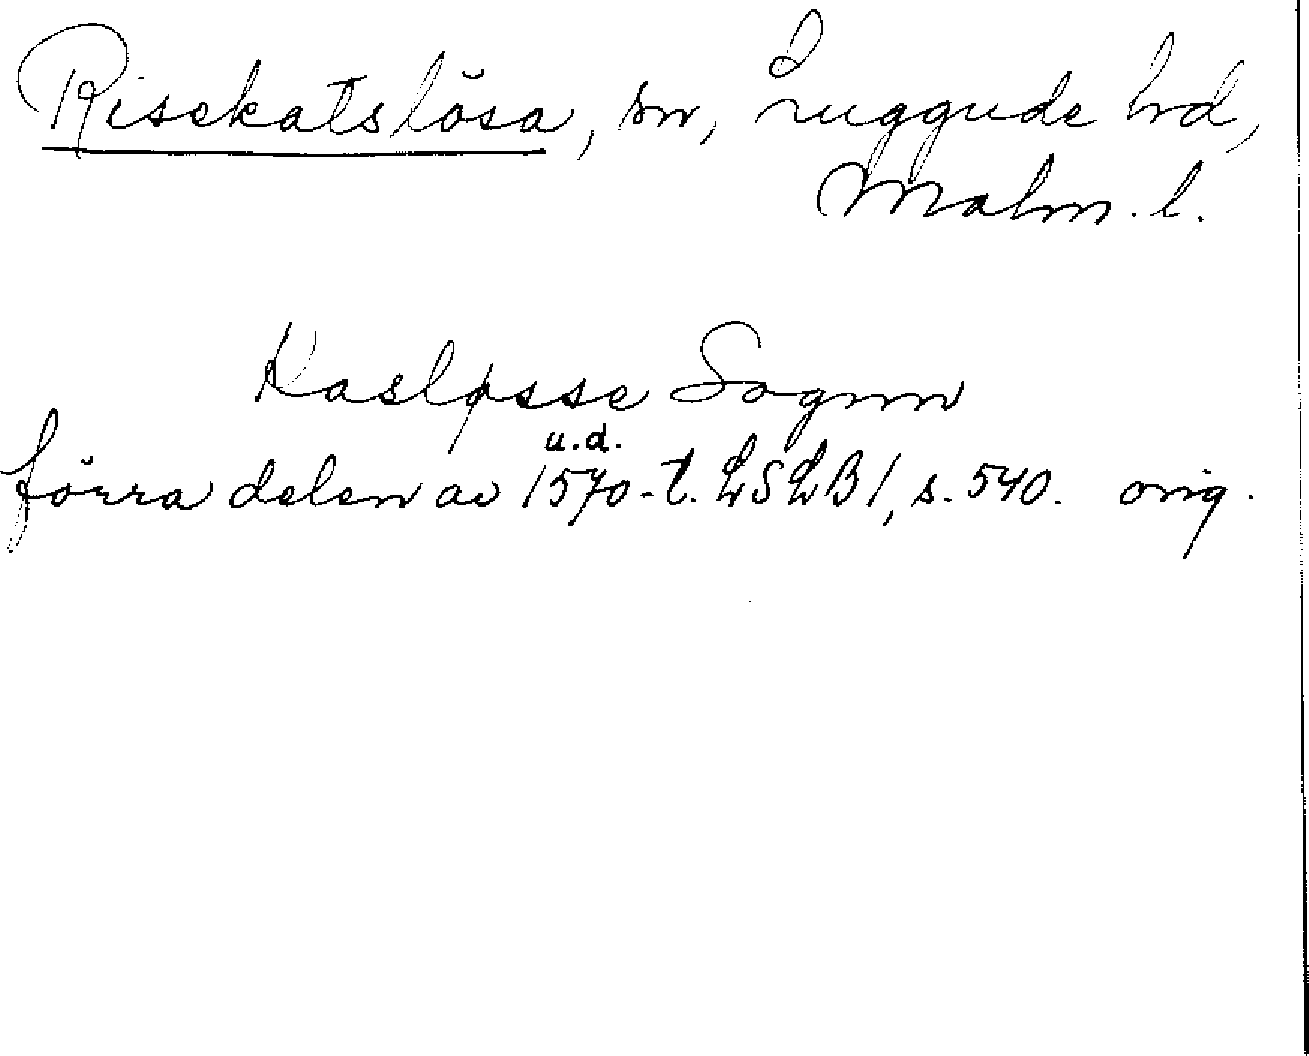 Risekatslösa, sn, Luggude hd,
Malm. l.
Kasløsse Sognn
u.d.
förra delen av 1570-t. LSLB1, s. 540. orig.